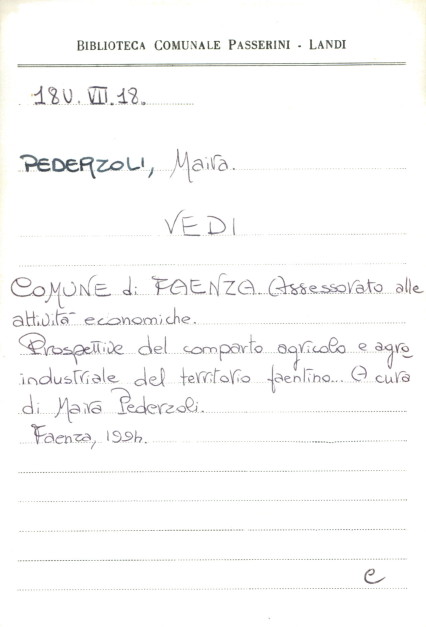 BIBLIOTECA COMUNALE PASSERINI - LANDI
18U. VII. 18.
PEDERZOLI, Maira.
VEDI
COMUNE di FAENZA. Assessorato alle
attività economiche.
Prospettive del comparto agricolo e agro
industriale del territorio faentino... A cura
di Maira Pederzoli.
Faenza, 1994.
e